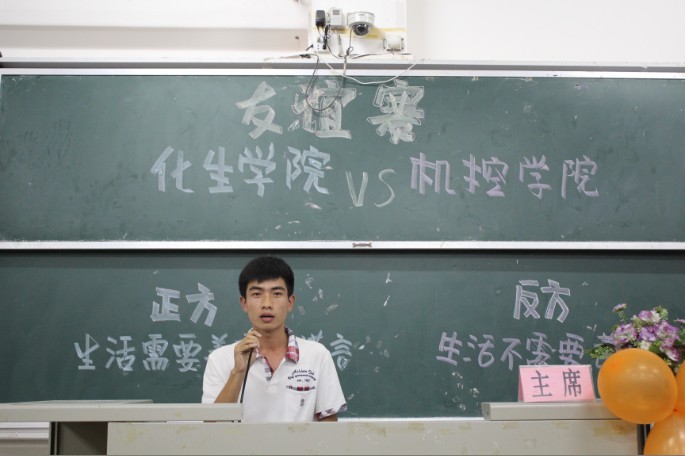 友谊赛
化生学院 VS 机控学院
正方
反方
生活需要善 言
生活不需要
主席